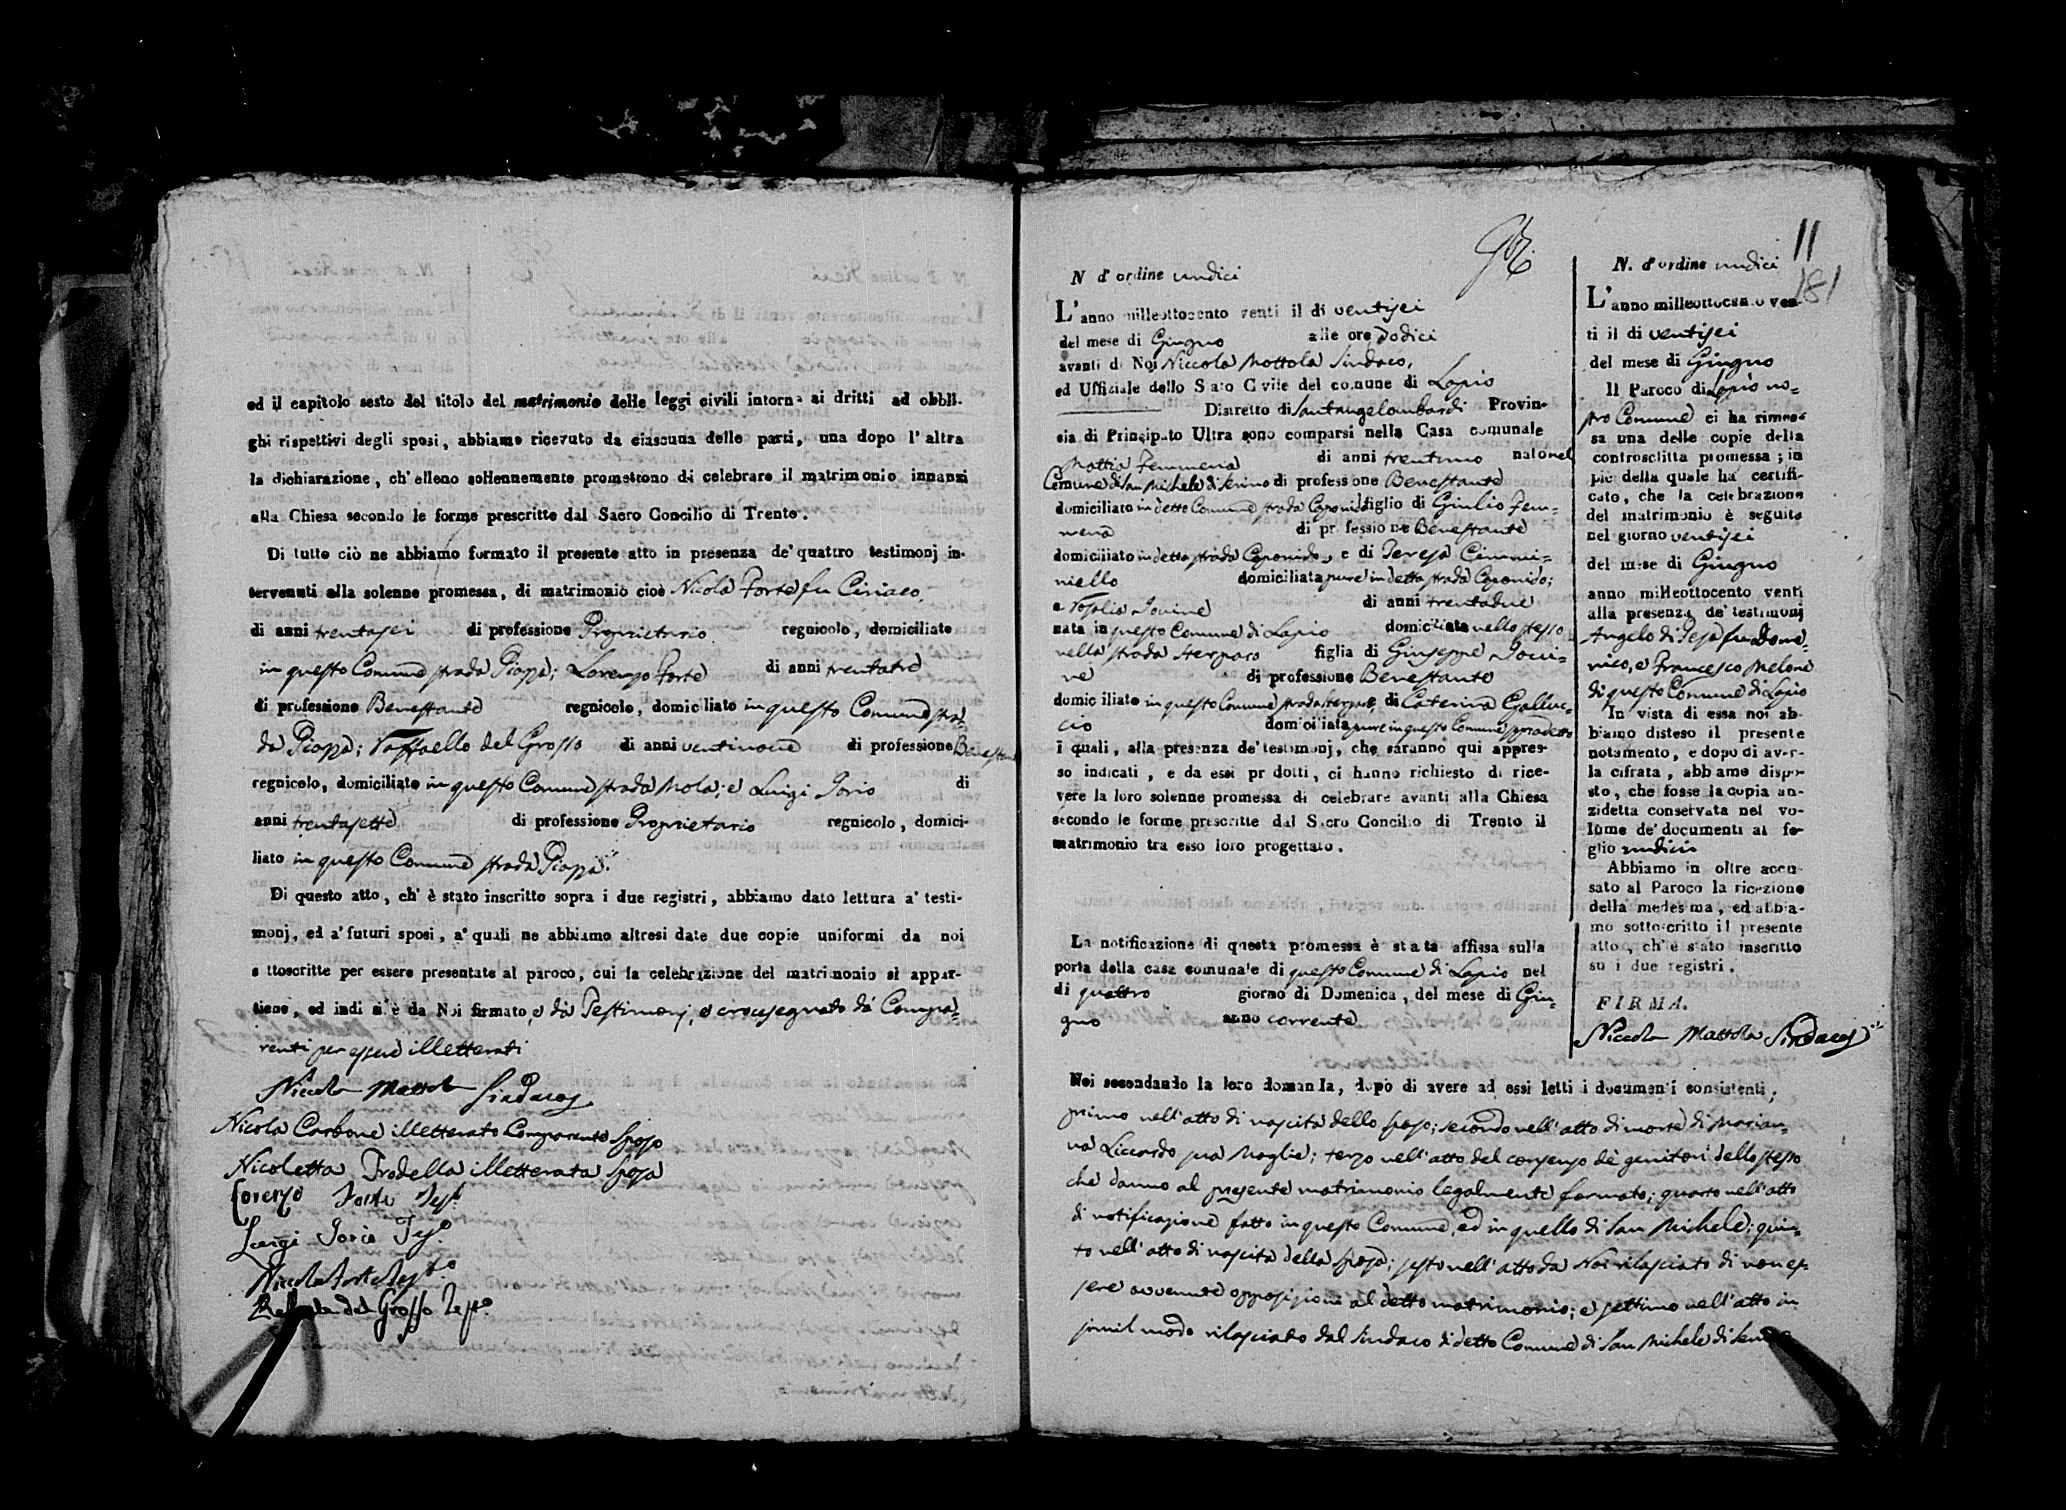 ed il capitolo sesto del titolo del matrimonio delle leggi civili intorno ai dritti ad obbli-
ghi rispettivi degli sposi, abbiamo ricevuto da ciascuna delle parti, una dopo l'altra
la dichiarazione, ch'elleno sollennemente promettono di celebrare il matrimonio innanzi
alla Chiesa secondo le forme prescritte dal Sacro Concilio di Trento.
Di tutto ciò ne abbiamo formato il presente atto in presenza de' quattro testimonj in-
tervenuti alla solenne promessa, di matrimonio cioè Nicola Forte fu Ciriaco,
di anni trentasei di professione Proprietario regnicolo, domiciliato
in questo Comune strada Piazza; Lorenzo Forte di anni trentatre
di professione Benestante regnicolo, domiciliato in questo Comune stra-
da Piazza; Raffaello del Grosso di anni ventinove di professione Benestante
regnicolo, domiciliato in questo Comune strada Mola; e Luigi Iorio di
anni trentasette di professione Proprietario regnicolo, domici-
liato in questo Comune strada Piazza.
Di questo atto, ch'è stato inscritto sopra i due registri, abbiamo dato lettura a' testi-
monj, ed a' futuri sposi, a' quali ne abbiamo altresì date due copie uniformi da noi
sottoscritte per essere presentate al paroco, cui la celebrazione del matrimonio si appar-
tiene, ed indi si è da Noi firmato, e da Testimonj, e crocesegnato da Compa-
renti per essere illetterati
Niccola Mottola Sindaco
Nicola Carbone illetterato Comparente Sposo
Nicoletta Trodella illetterata Sposa
Lorenzo Forte Test.o
Luigi Iorio Tes.o
Nicola Forte Test.o
Raffaele del Grosso Test.o
11
181
N d'ordine undici
L'anno milleottocento venti il di ventisei
del mese di Giugno alle ore dodici
avanti di Noi Niccola Mottola Sindaco,
ed Uffiziale dello Stato Civile del comune di Lapio
Distretto di Santangelombardi Provin-
cia di Principato Ultra sono comparsi nella Casa comunale
Mattia Femmena di anni trentuno nato nel
Comune di San Michele di Serino di professione Benestante
domiciliato in detto Comune strada Caponido figlio di Giulio Fem-
mena di professione Benestante
domiciliato in detta strada Caponido, e di Teresa Cimmi-
niello domiciliata pure in detta strada Caponido;
e Rosolia Iovine di anni trentadue
nata in questo Comune di Lapio domiciliata nello stesso
nella strada Sterparo figlia di Giuseppe Iovi-
ne di professione Benestante
domiciliato in questo Comune strada Sterparo, e di Caterina Galluc-
cio domiciliata pure in questo Comune sopradetto
i quali, alla presenza de' testimonj, che saranno qui appres-
so indicati, e da essi prodotti, ci hanno richiesto di rice-
vere la loro solenne promessa di celebrare avanti alla Chiesa
secondo le forme prescritte dal Sacro Concilio di Trento il
matrimonio tra esso loro progettato.
La notificazione di questa promessa è stata affissa sulla
porta della casa comunale di questo Comune di Lapio nel
di quattro giorno di Domenica, del mese di Giu-
gno anno corrente
Noi secondando la loro domanda, dopo di avere ad essi letti i documenti consistenti,
primo nell'atto di nascita dello sposo; secondo nell'atto di morte di Marian-
na Liccardo sua Moglie; terzo nell'atto del consenso de' genitori dello stesso
che danno al presente matrimonio legalmente formato; quarto nell'atto
di notificazione fatto in questo Comune, ed in quello di San Michele; quin-
to nell'atto di nascita della sposa; sesto nell'atto da Noi rilasciato di non es-
sere avvenute opposizioni al detto matrimonio; e settimo nell'atto in
simil modo rilasciato dal Sindaco di detto Comune di San Michele di Serino
N. d'ordine undici
L'anno milleottocento ven-
ti il di ventisei
del mese di Giugno
Il Paroco di Lapio no-
stro Comune ci ha rimes-
sa una delle copie della
controscritta promessa; in
piè della quale ha certifi-
cato, che la celebrazione
del matrimonio è seguita
nel giorno ventisei
del mese di Giugno
anno milleottocento venti
alla presenza de' testimonj
Angelo di Jesa fu Dome-
nico, e Francesco Melone
di questo Comune di Lapio
In vista di essa noi ab-
biamo disteso il presente
notamento, e dopo di aver-
la cifrata, abbiamo dispo-
sto, che fosse la copia an-
zidetta conservata nel vo-
lume de' documenti al fo-
glio undici
Abbiamo in oltre accu-
sato al Paroco la ricezione
della medesima, ed abbia-
mo sottoscritto il presente
atto, ch'è stato inscritto
su i due registri.
FIRMA.
Niccola Mottola Sindaco